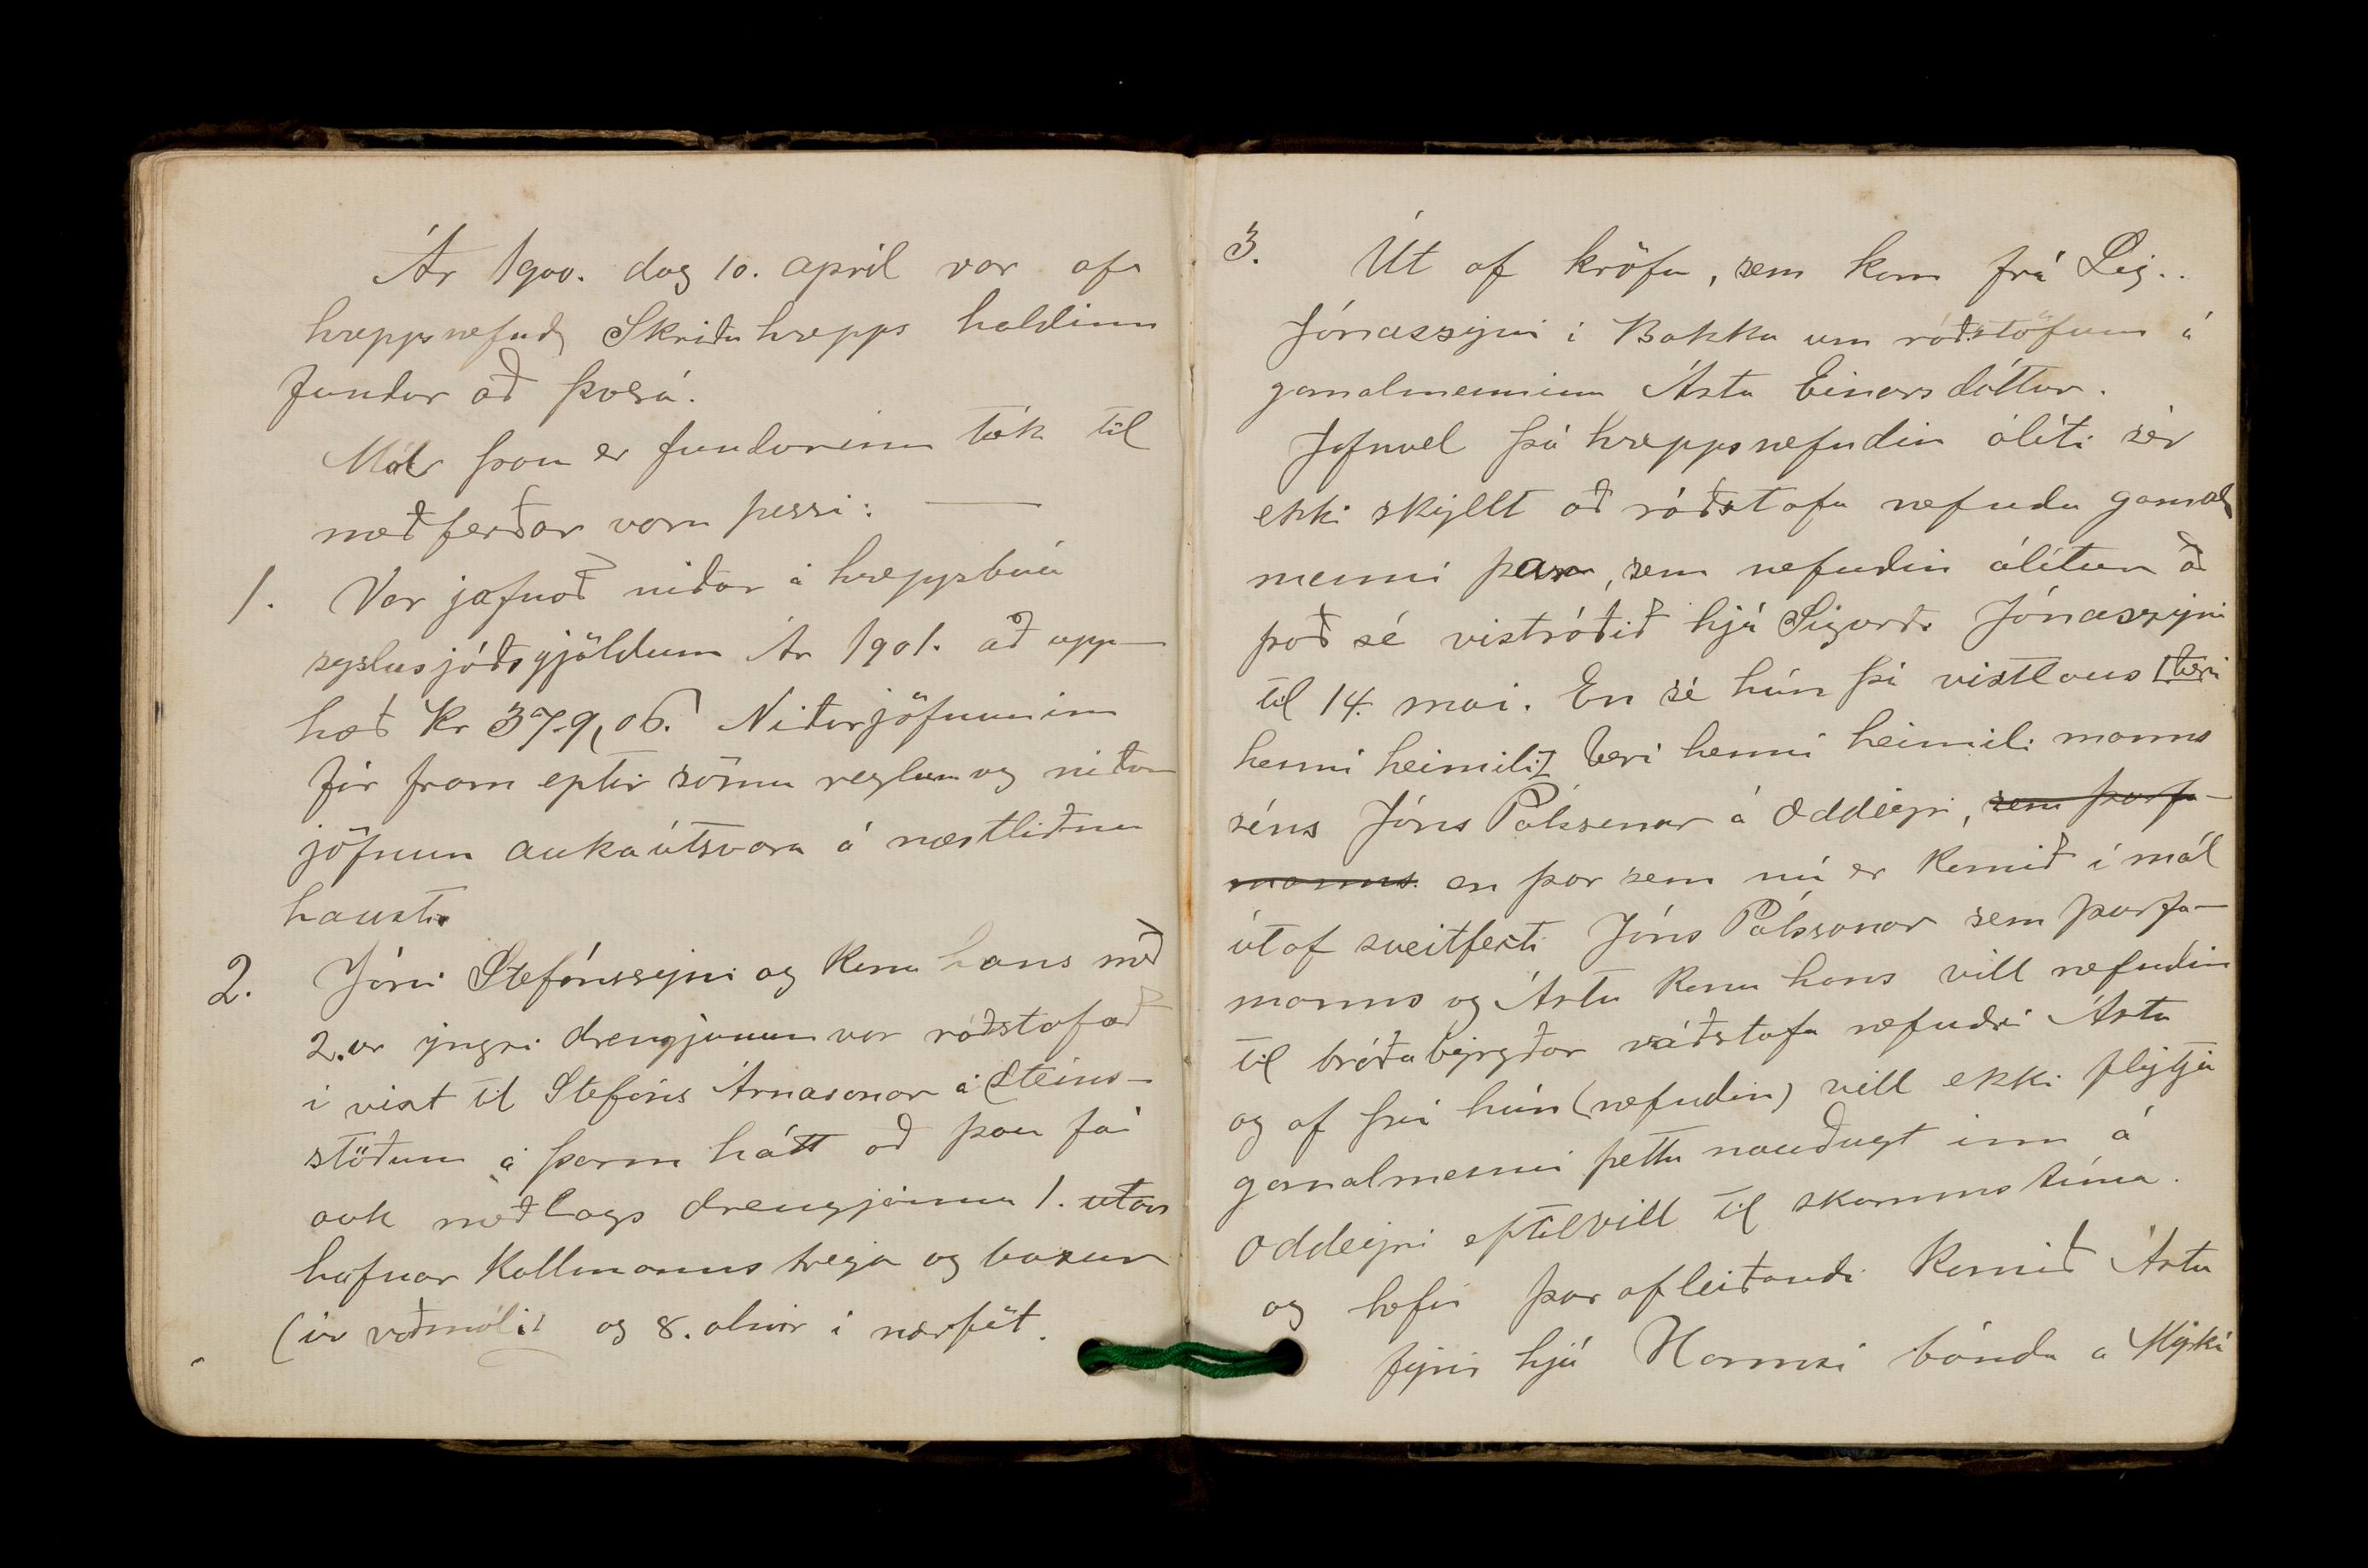 Ár 1900. dag 10. apríl var af
hreppsnefnd Skriðuhrepps haldinn
fundur að Þverá.
Mál þau er fundurinn tók til
meðferðar voru þessi: —
1. Var jafnað niður á hreppsbúa
syslusjóðsgjöldum Ár 1901. að upp-
hæð Kr 379,06. Niðurjöfnunin
fór fram eptir sömu reglum og niður
jöfnun aukaútsvara á næstliðnu
hausti
2. Jóni Stefánssyni og Konu hans með
2.ur yngri drengjunum var ráðstafað
i vist til Stefáns Árnasonar á Steins-
stöðum á þann hátt að þau fái
auk meðlags drengjanna 1. utan
hafnar Kallmanns treyja og buxur
(úr vaðmáli) og 8. alnir í nærföt.
3. Út af kröfu, sem kom frá Sig..
Jónassyni í Bakka um ráðstöfun á
gamalmenninu Ástu Einarsdóttur.
Jafnvel þó hreppsnefndin áliti sér
ekki skyllt að ráðstafa nefndu gamal
menni þar, sem nefndin álítur að
það sé vistráðið hjá Sigurði Jónassyni
til 14. mai. En sé hún þá vistlaus [beri
henni heimili] beri henni heimili manns
síns Jóns Pálssonar á Oddeyri, sem þurfa-
manns. en þar sem nú er Komið í mál
útaf sveitfesti Jóns Pálssonar sem þurfa-
manns og Ástu Konu hans vill nefndin
til bráðabyrgðar ráðstafa nefndri Ástu
og af því hún (nefndin) vill ekki flytja
gamalmenni þetta nauðugt inn á
Oddeyri eftilvill til skamms tíma.
og hefir þar afleiðandi Komið Ástu
fyrir hjá Hannesi bónda a Mýrká